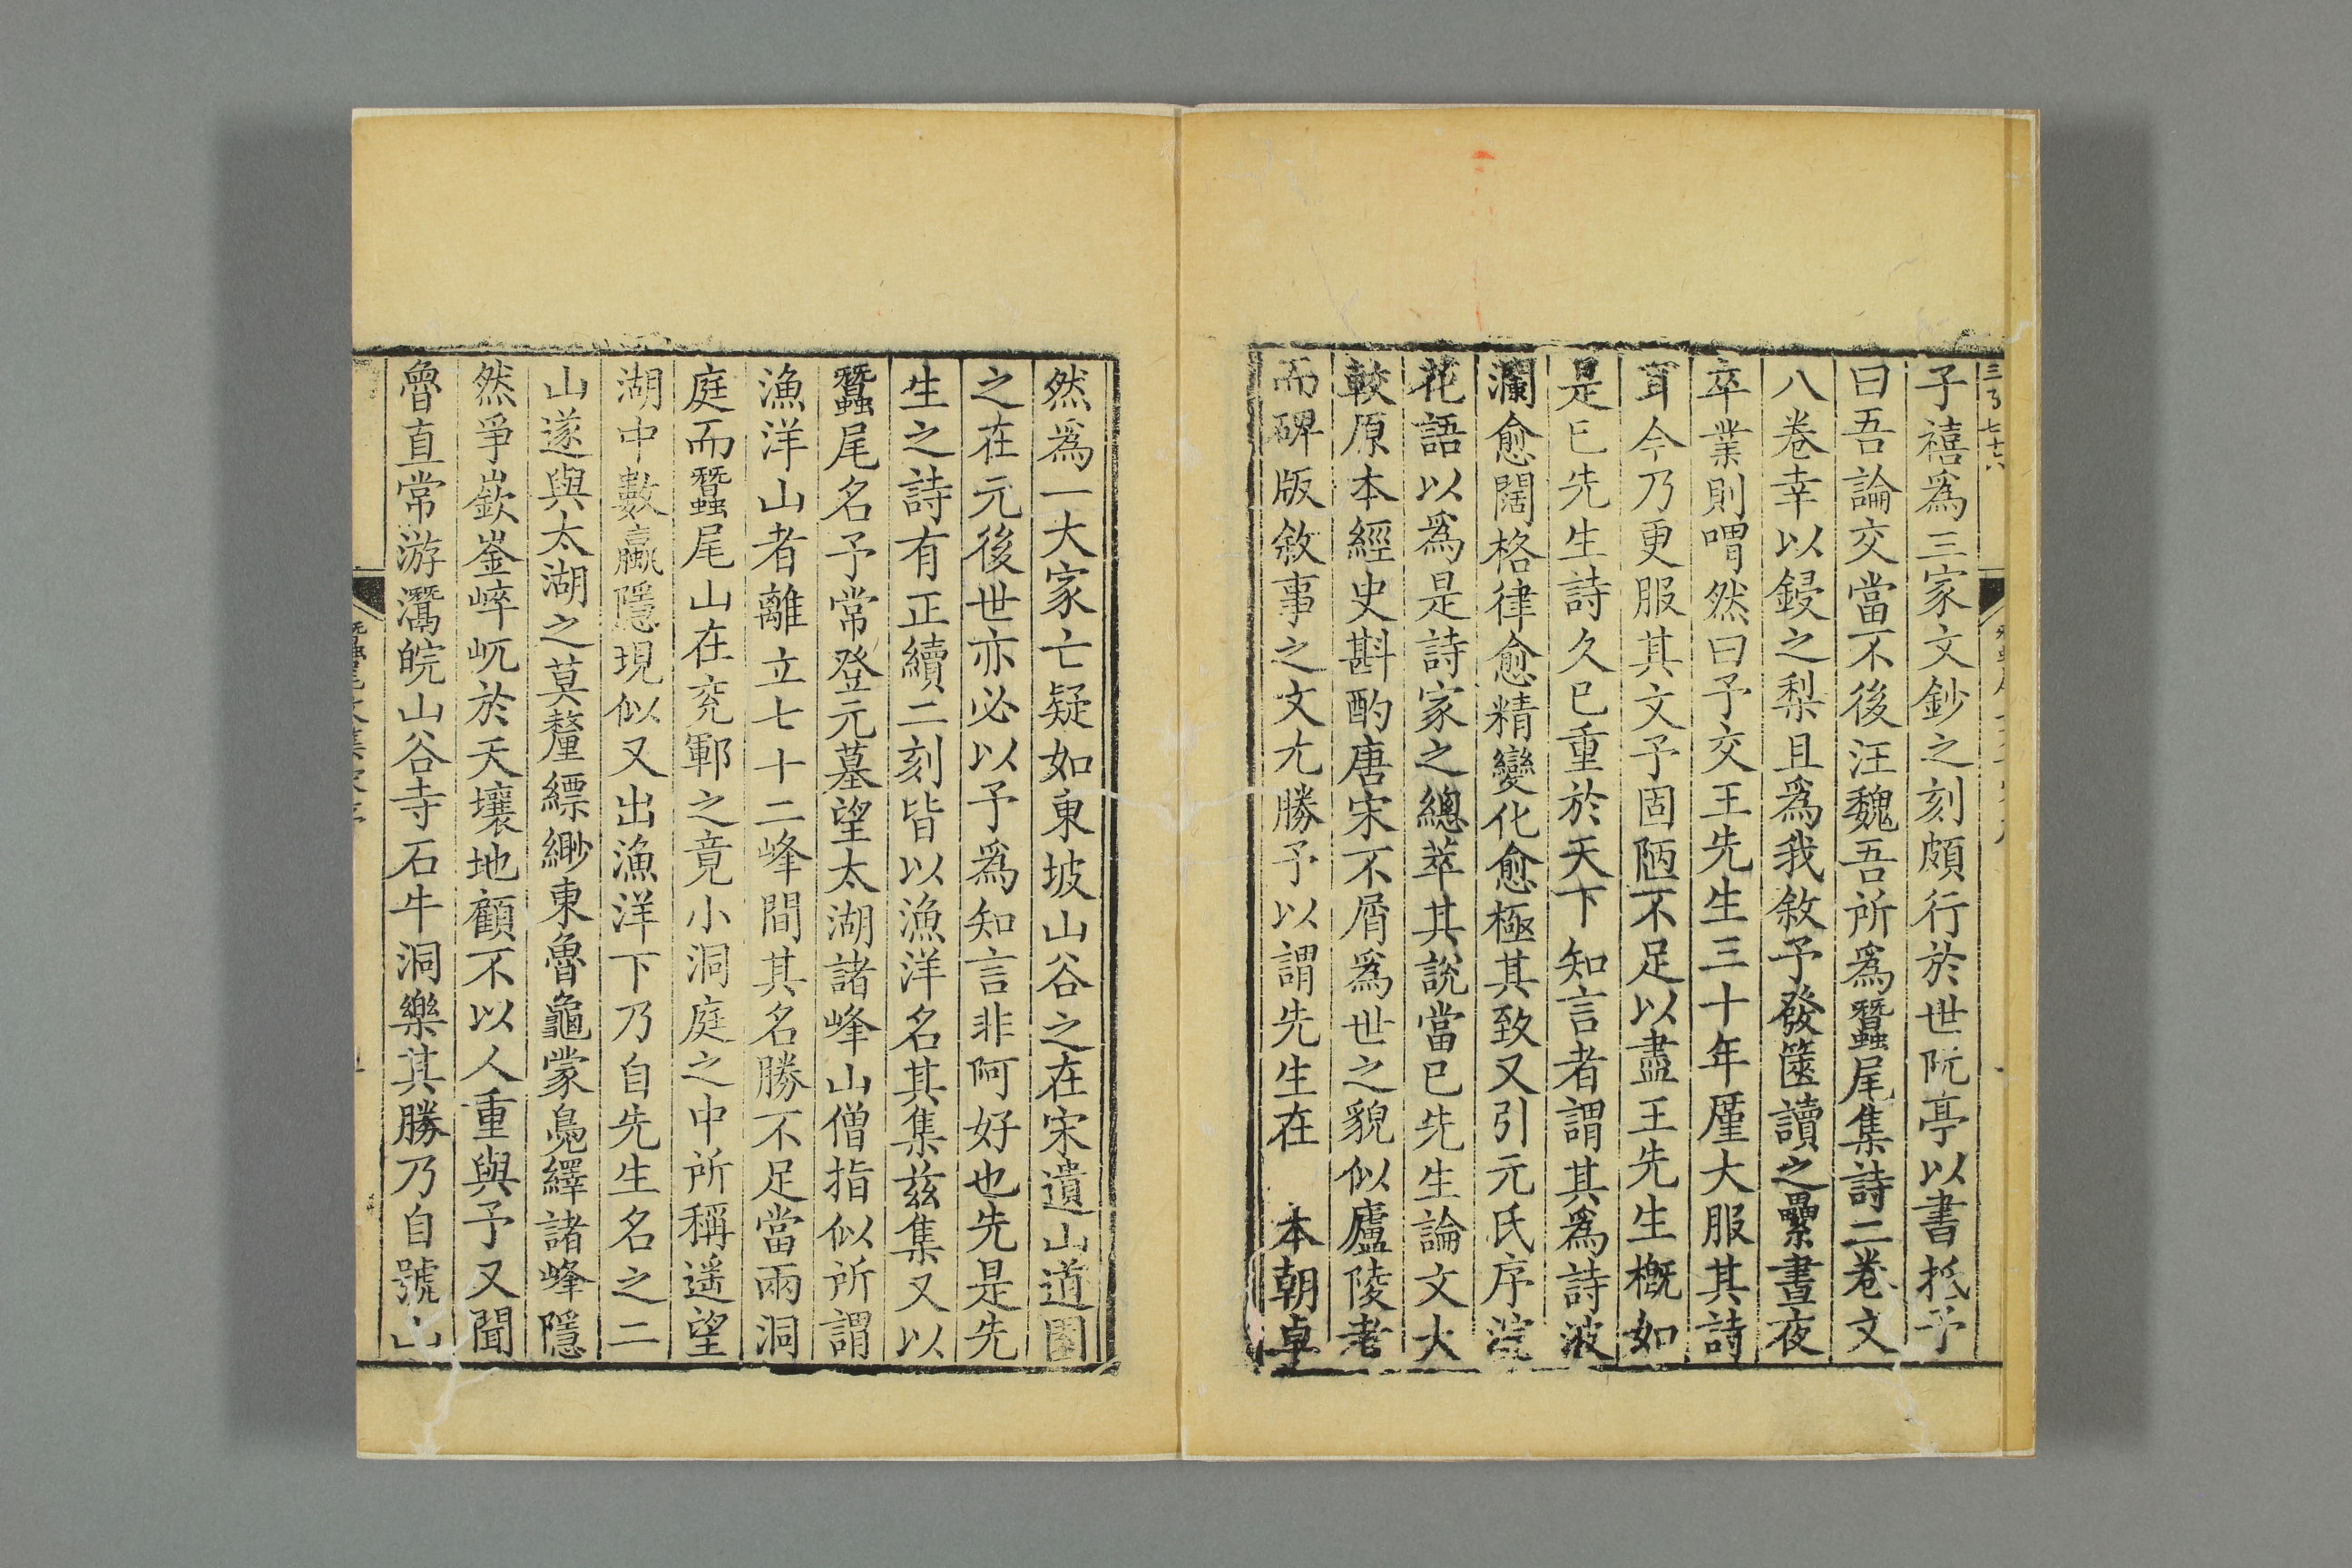 子禧爲三家文鈔之刻頗行於世阮亭以書抵予
曰吾論交當不後汪魏吾所爲蠶尾集詩二卷文
八卷幸以鋟之梨且爲我敘予發篋讀之纍晝夜
卒業則喟然曰予交王先生三十年厪大服其詩
耳今乃更服其文予固陋不足以盡王先生槪如
是已先生詩久已重於天下知言者謂其爲詩波
瀾愈闊格律愈精變化愈極其致又引元氏序浣
花語以爲是詩家之總萃其說當已先生論文大
較原本經史斟酌唐宋不屑爲世之貌似廬陵者
而碑版敘事之文尤勝予以謂先生在 本朝卓
然爲一大家亡疑如東坡山谷之在宋遺山道園
之在元後世亦必以予爲知言非阿好也先是先
生之詩有正續二刻皆以漁洋名其集兹集又以
蠶尾名予常登元墓望太湖諸峰山僧指似所謂
漁洋山者離立七十二峰間其名勝不足當兩洞
庭而蠶尾山在兖鄆之竟小洞庭之中所稱遥望
湖中數蠃隱現似又出漁洋下乃自先生名之二
山遂與太湖之莫釐縹緲東魯龜蒙鳧繹諸峰隱
然爭嶔崟崪屼於天壤地顧不以人重與予又聞
魯直常游灊皖山谷寺石牛洞樂其勝乃自號山